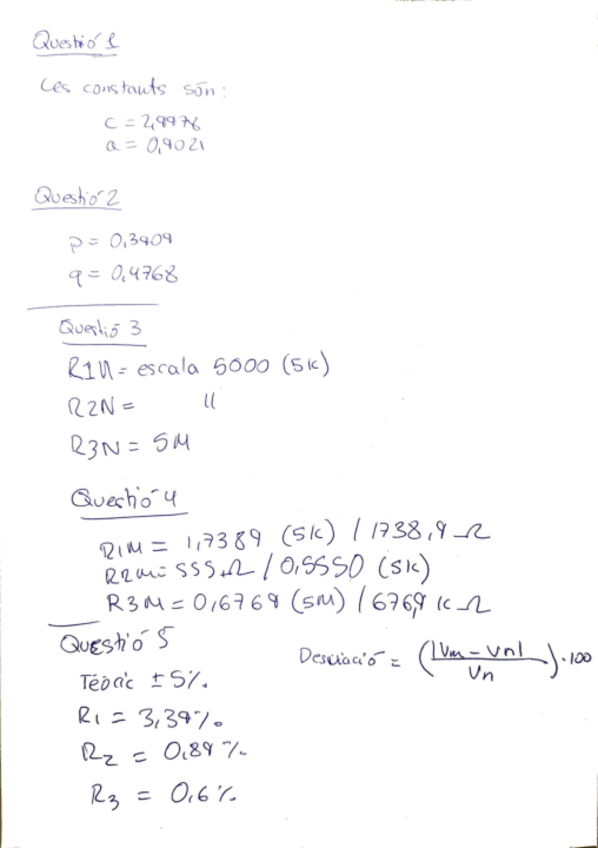 Questió 1
Les constants són:
c = 2,9976
a = 0,9021
Questió 2
p = 0,3909
q = 0,4768
Questió 3
R1N = escala 5000 (5k)
R2N = "
R3N = 5M
Questió 4
R1M = 1,7389 (5k) / 1738,9 Ω
R2M = 555 Ω / 0,5550 (5k)
R3M = 0,6769 (5M) / 676,9 k Ω
Questió 5
Desviació = (|Vm - Vn| / Vn) · 100
Teòric ± 5%.
R1 = 3,39%
R2 = 0,89%.
R3 = 0,6%